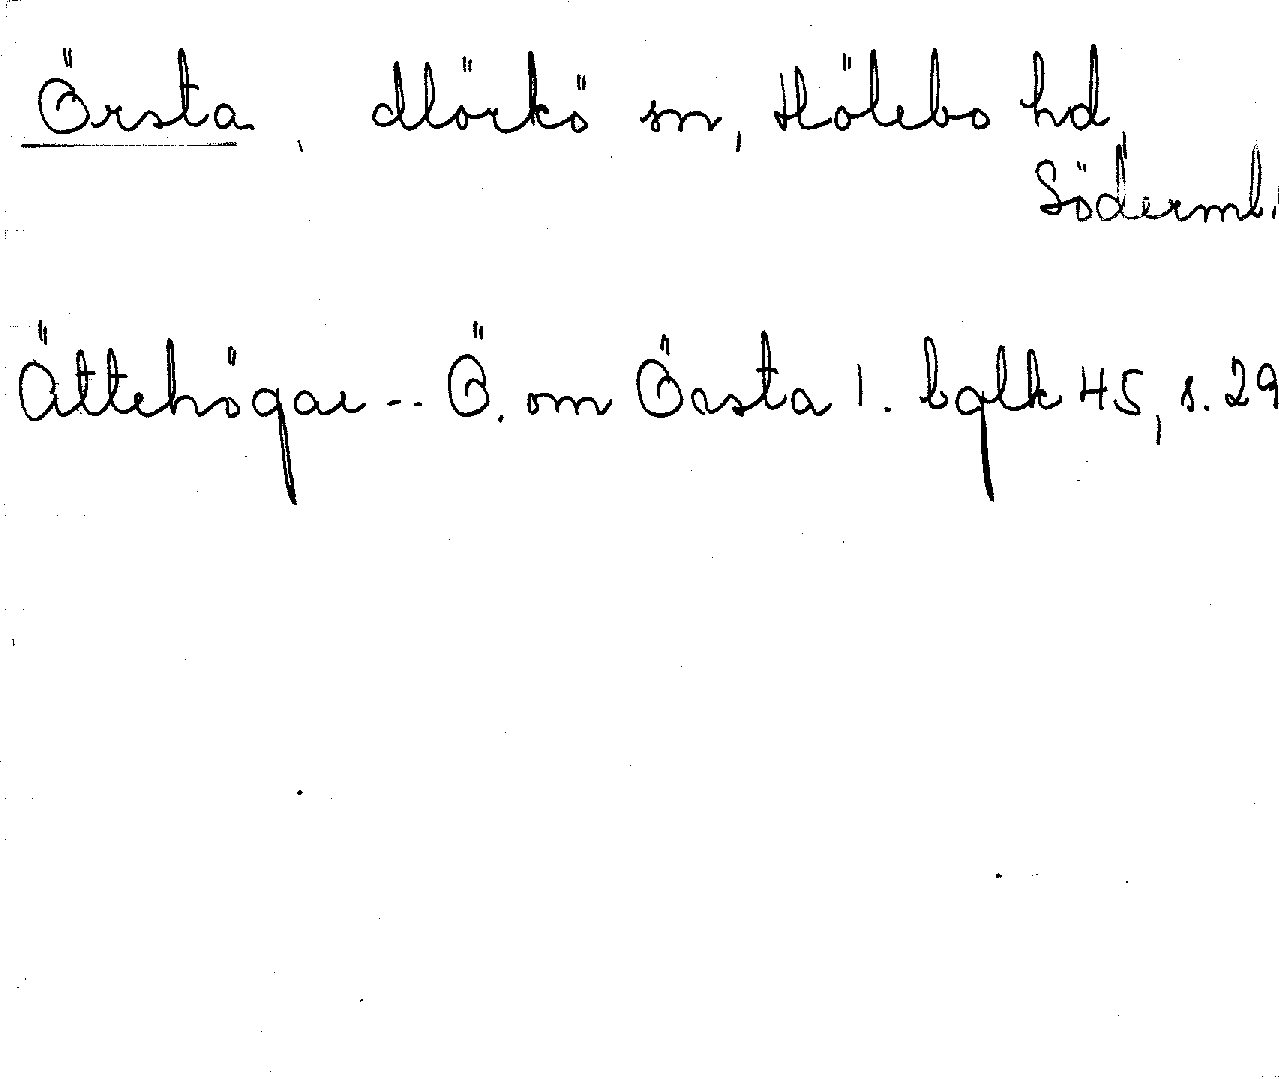 Örsta, Mörkö sn, Hölebo hd,
Söderml.
Ättehögar -- Ö. om Örsta l. bglk 45, s. 29